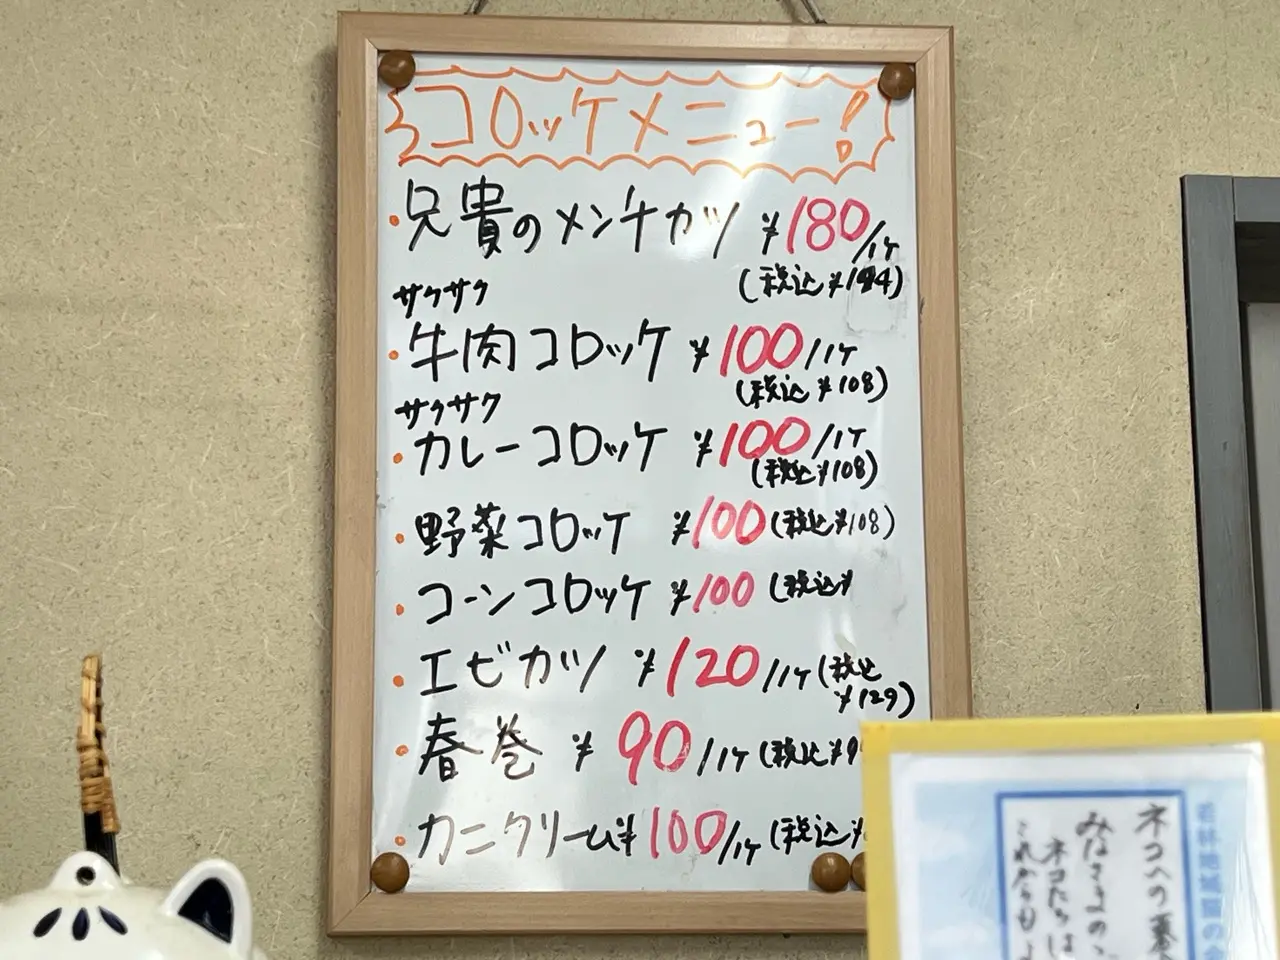 コロッケメニュー!
・兄貴のメンチカツ ¥180/1ケ
(税込¥194)
サクサク
・牛肉コロッケ ¥100/1ケ
(税込¥108)
サクサク
・カレーコロッケ ¥100/1ケ
(税込¥108)
・野菜コロッケ ¥100(税込¥108)
・コーンコロッケ ¥100 (税込¥
・エビカツ ¥120/1ケ(税込
¥129)
・春巻 ¥90/1ケ(税込¥9
・カニクリーム¥100/1ケ(税込¥
ネコへの募
みなさまの、
ネコたちは
これからも